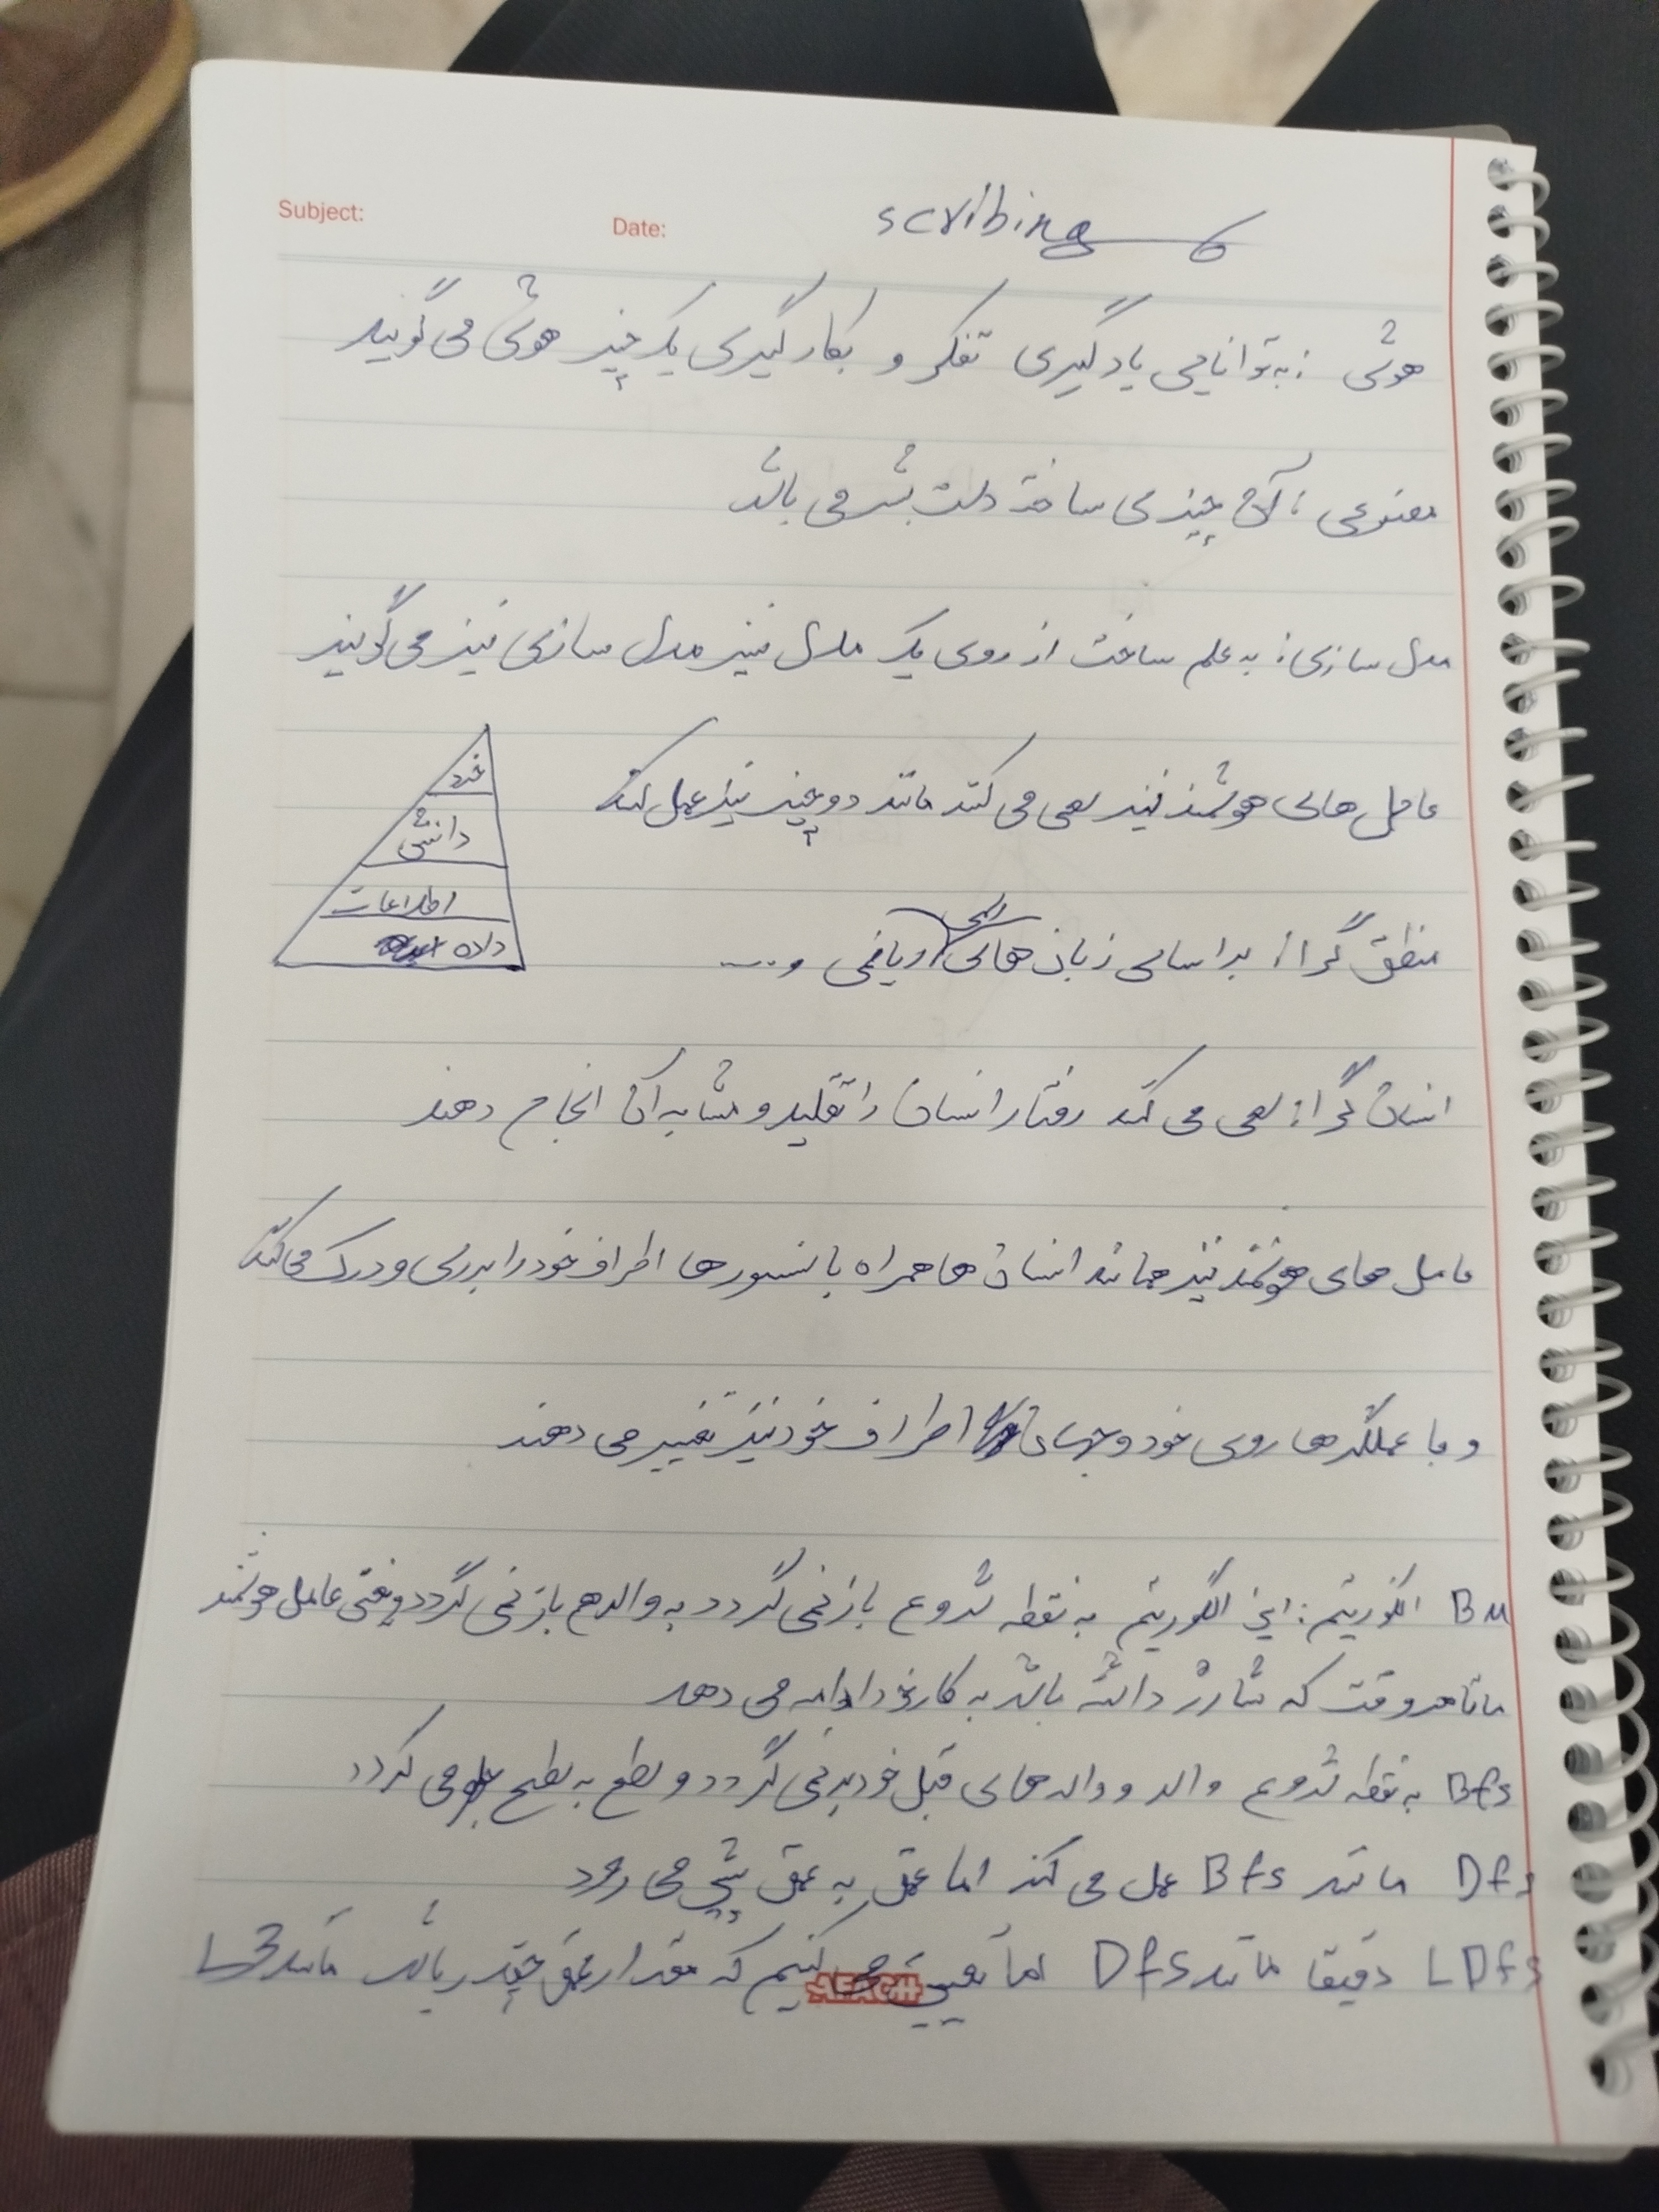 Subject:
Date:
scribing
هوش : به توانایی یادگیری تفکر و بکارگیری یک چیز هوش می گویند
مصنوعی : آن چیزی ساخته دست بشر می باشد
مدل سازی : به علم ساخت از روی یک مدل نیز مدل سازی نیز می گویند
عامل های هوشمند نیز سعی می کنند مانند دو چیز نیز عمل کنند
خرد
دانش
اطلاعات
داده
منطق گرا : بر اساس زبان های ریاضی و ....
انسان گرا : سعی می کند رفتار انسان را تقلید و مشابه آن انجام دهند
عامل های هوشمند نیز همانند انسان ها همراه با سنسورها اطراف خود را بررسی و درک می کنند
و با عملگرها روی خود و جهان اطراف خود نیز تغییر می دهند
الگوریتم : این الگوریتم به نقطه شروع باز نمی گردد به والد هم باز نمی گردد یعنی عامل هوشمند
ما تا هر وقت که شارژ داشته باشد به کار خود ادامه می دهد
Bfs به نقطه شروع والد و والد های قبل خود بر نمی گردد و سطح به سطح می گردد
Dfs مانند Bfs عمل می کند اما عمق به عمق پیش می رود
LDfs دقیقا مانند Dfs اما تعیین می کنیم که مقدار عمق چقدر باشد مانند L3